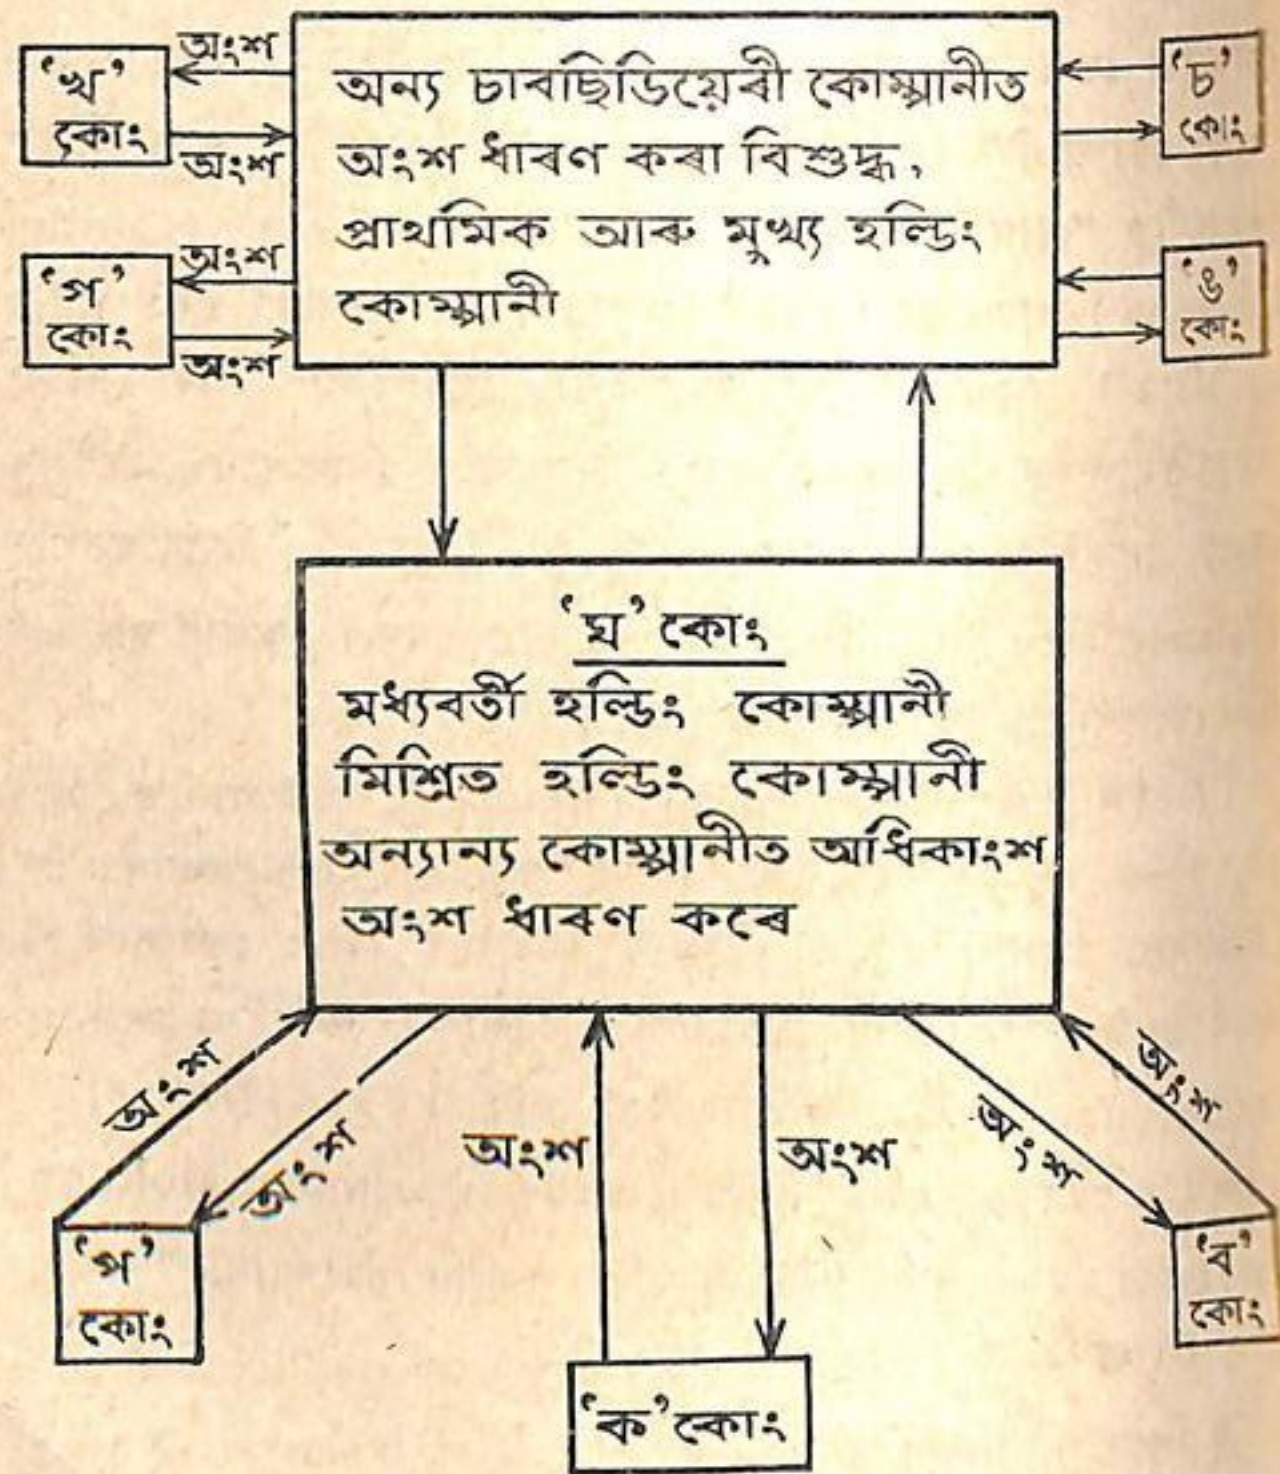 অংশ
‘খ’
কোং
অংশ
অংশ
‘গ’
কোং
অংশ
অন্য চাবছিডিয়েৰী কোম্পানীত
অংশ ধাৰণ কৰা বিশুদ্ধ,
প্ৰাথমিক আৰু মুখ্য হল্ডিং
কোম্পানী
‘চ’
কোং
‘ঙ’
কোং
‘ঘ’ কোং
মধ্যবৰ্তী হল্ডিং কোম্পানী
মিশ্ৰিত হল্ডিং কোম্পানী
অন্যান্য কোম্পানীত অধিকাংশ
অংশ ধাৰণ কৰে
অংশ
অংশ
অংশ
অংশ
অংশ
অংশ
‘প’
কোং
‘ক’ কোং
‘ব’
কোং